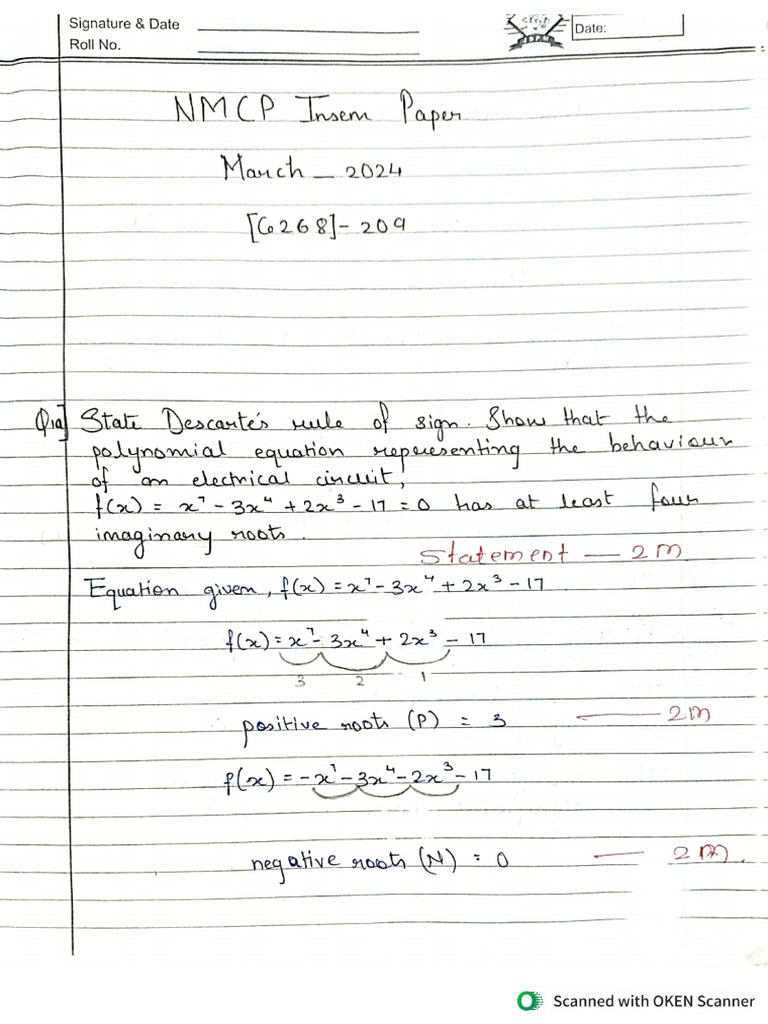 Signature & Date
Roll No.
Date:
NMCP Insem Paper
March - 2024
[6268]-209
Q1a] State Descarte's rule of sign. Show that the
polynomial equation representing the behaviour
of an electrical circuit,
f(x) = x⁷ - 3x⁴ + 2x³ - 17 = 0 has at least four
imaginary roots.
Statement — 2m
Equation given, f(x) = x⁷ - 3x⁴ + 2x³ - 17
f(x) = x⁷ - 3x⁴ + 2x³ - 17
3 2 1
positive roots (P) = 3 — 2m
f(x) = -x⁷ - 3x⁴ - 2x³ - 17
negative roots (N) = 0 — 2m.
Scanned with OKEN Scanner